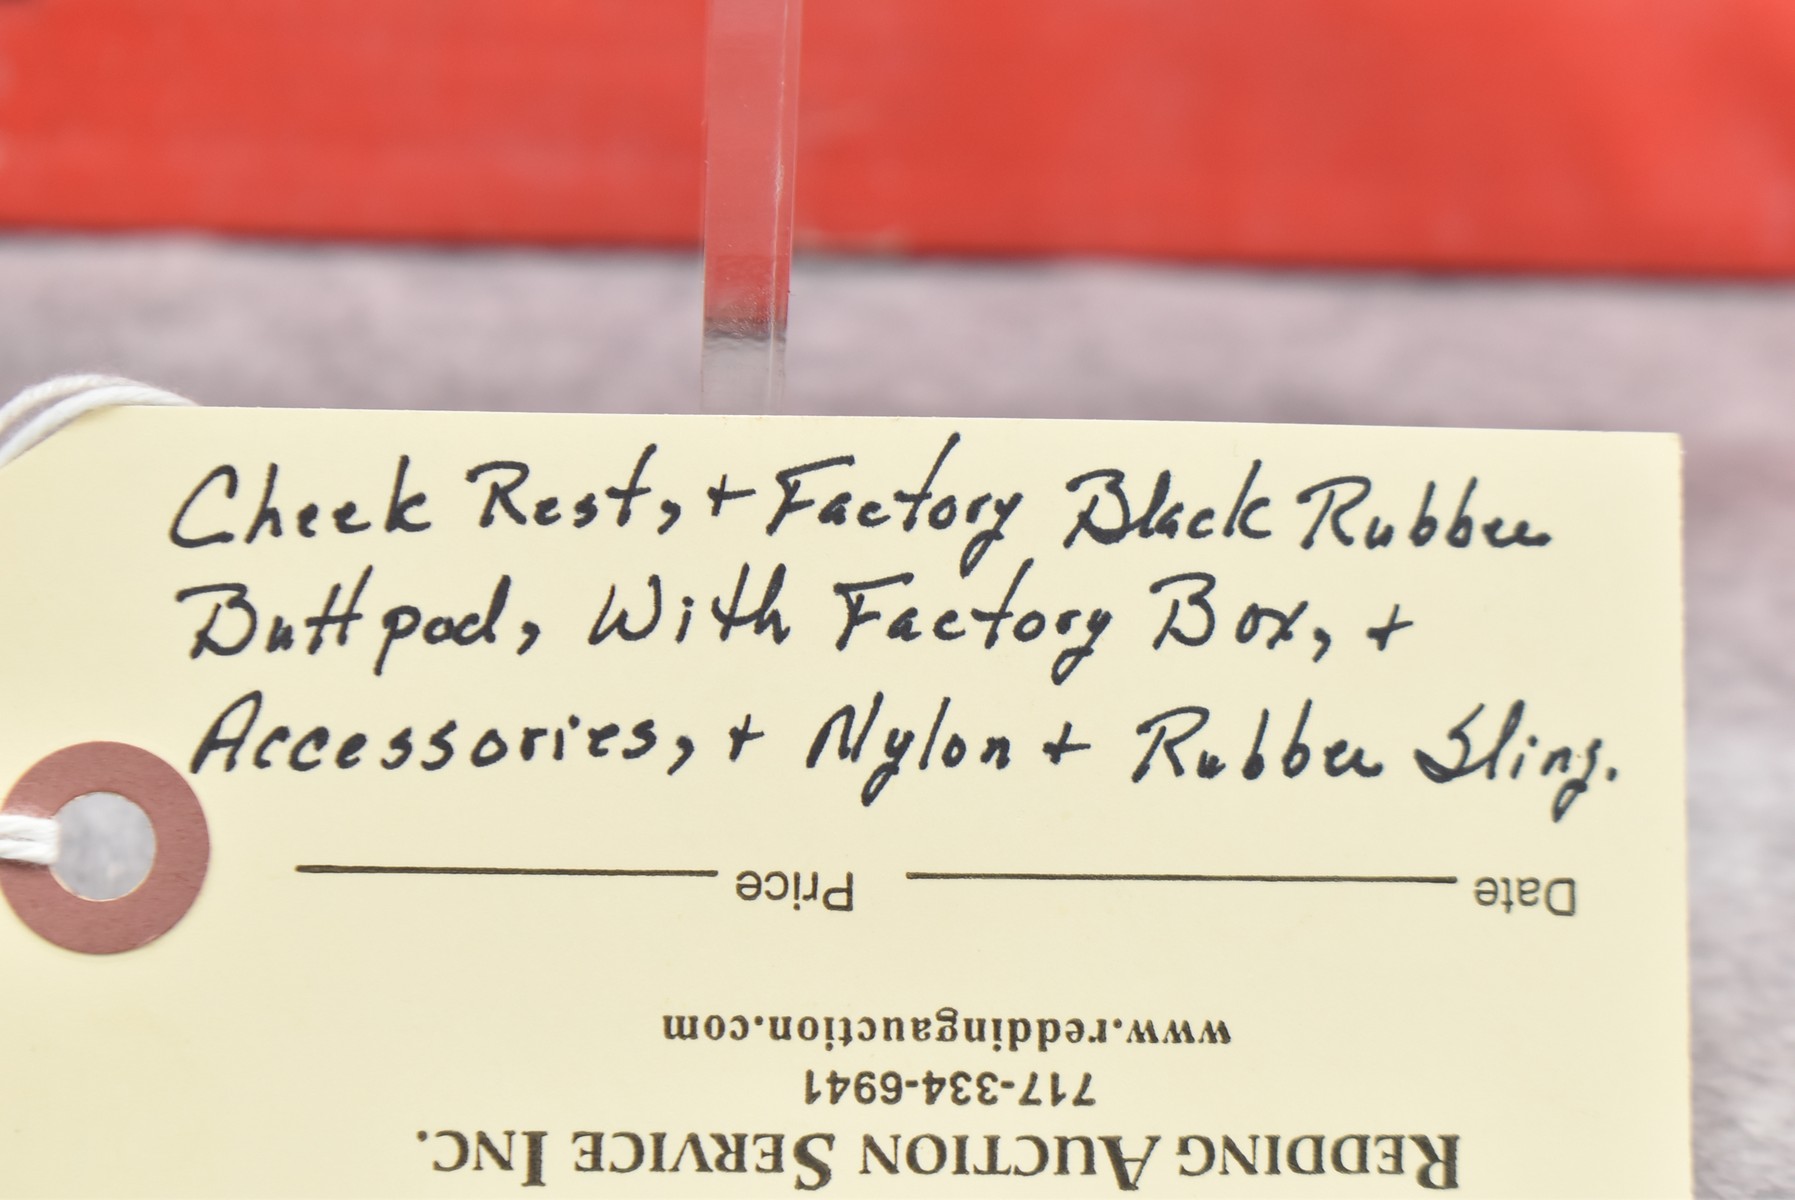 Cheek Rest, + Factory Black Rubber
Buttpad, With Factory Box, +
Accessories, + Nylon + Rubber Sling.
Date Price
www.reddingauction.com
717-334-6941
REDDING AUCTION SERVICE INC.